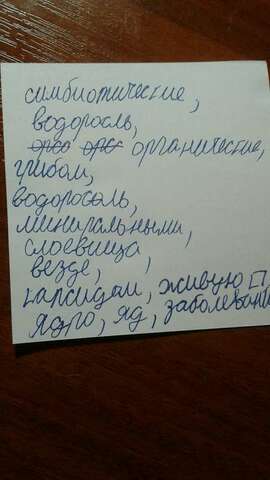 симбиотические,
водоросль,
органические,
грибом,
водоросоль,
миниральными,
слоевища,
везде,
капсидом, живую
ядро, яд, заболевани